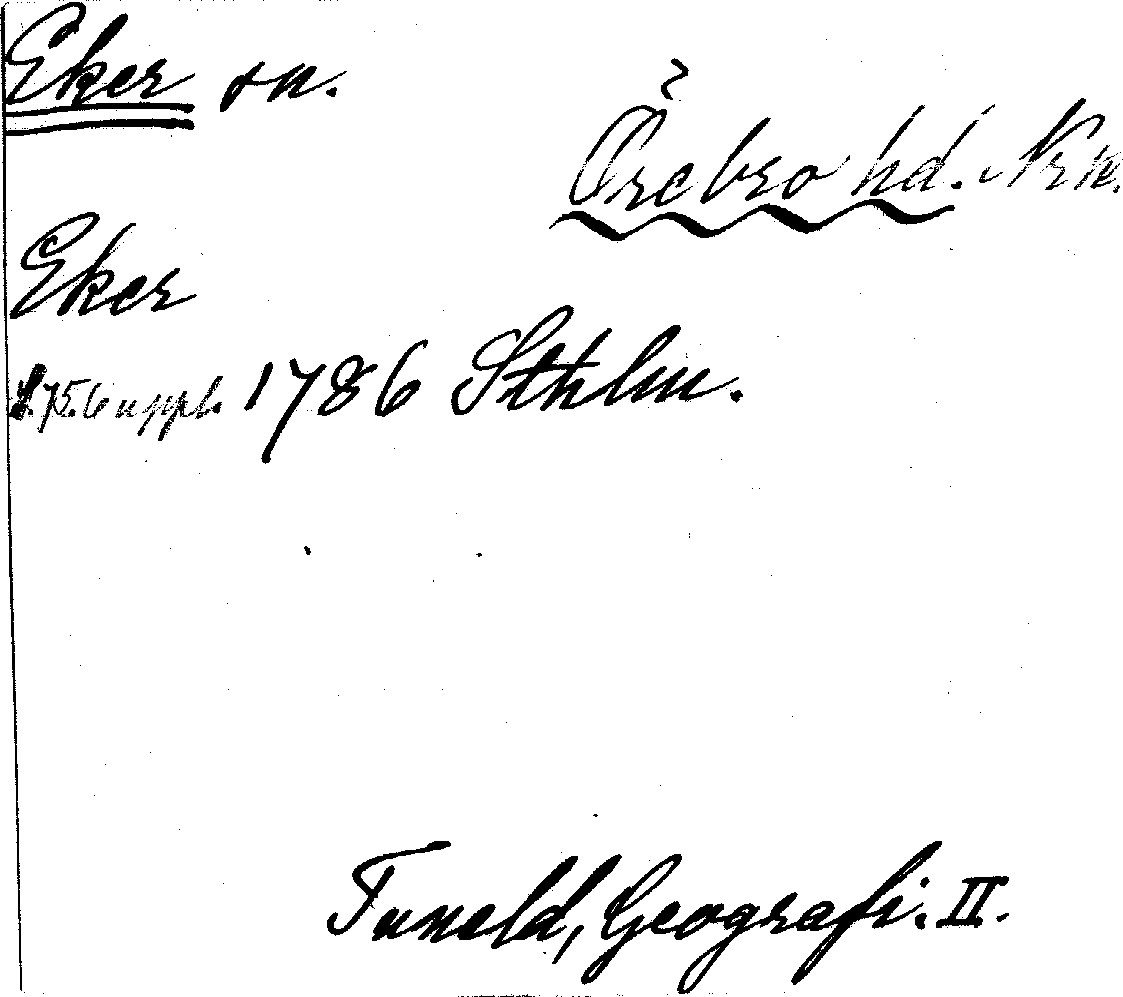 Eker sn.
Örebro hd. Nrk.
Eker
s. 75. 6 uppl. 1786 Sthlm.
Tuneld, Geografi. II.